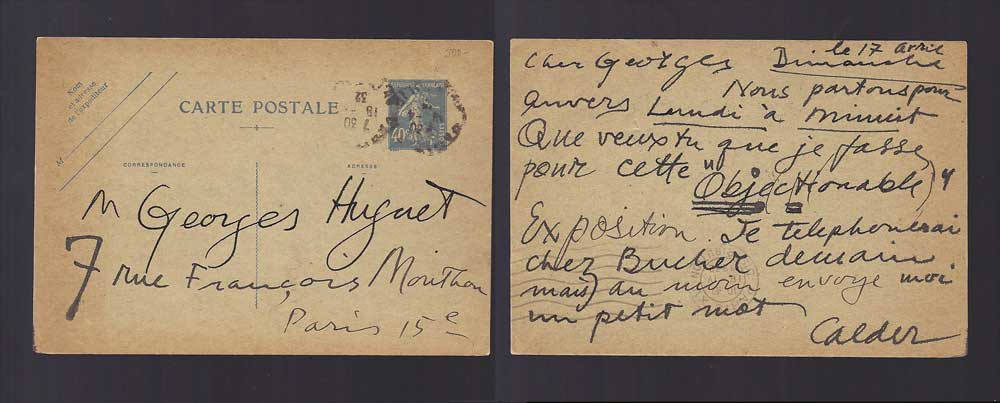 500-
Nom
et adresse
de l'expéditeur
M
CARTE POSTALE
40c
7 30
18
32
CORRESPONDANCE
ADRESSE
M Georges Hugnet
7 rue François Monthon
Paris 15e
le 17 avril
Cher Georges Dimanche
Nous partons pour
Anvers Lundi à minuit
Que veux tu que je fasse
pour cette "
Obje(ct)ionable)"
Exposition. Je telephonerai
chez Bucher demain
mais) au moin envoye moi
un petit mot
Calder